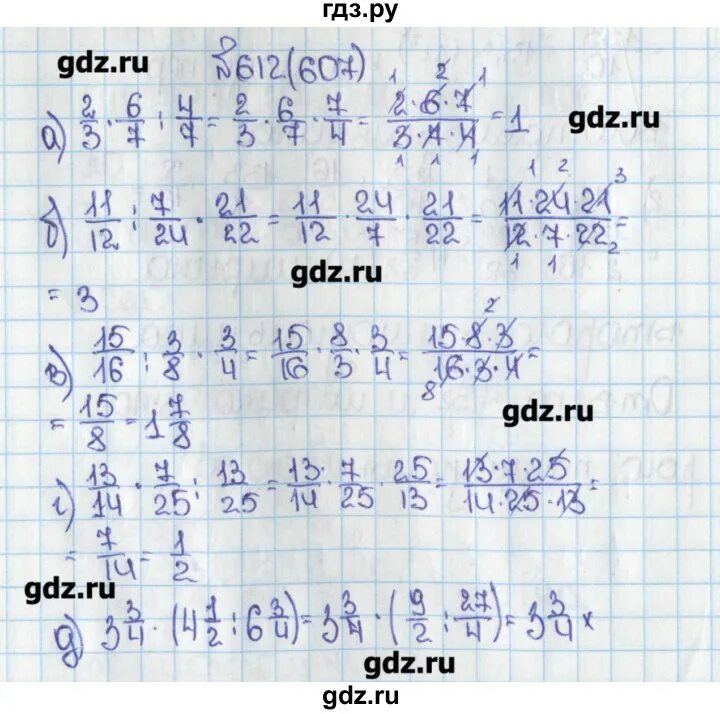 гдз.ру
gdz.ru
№612(607)
а) 2/3 · 6/7 : 4/7 = 2/3 · 6/7 · 7/4 = 2·6·7/3·7·4 = 1
1 2 1
1 1 1
gdz.ru
б) 11/12 : 7/24 · 21/22 = 11/12 · 24/7 · 21/22 = 11·24·21/12·7·22 =
1 2 3
1 1 2
gdz.ru
= 3
в) 15/16 : 3/8 · 3/4 = 15/16 · 8/3 · 3/4 = 15·8·3/16·3·4 =
2
8
= 15/8 = 1 7/8
gdz.ru
г) 13/14 · 7/25 : 13/25 = 13/14 · 7/25 · 25/13 = 13·7·25/14·25·13 =
= 7/14 = 1/2
gdz.ru
д) 3 3/4 · (4 1/2 : 6 3/4) = 3 3/4 · (9/2 : 27/4) = 3 3/4 ×
gdz.ru
gdz.ru